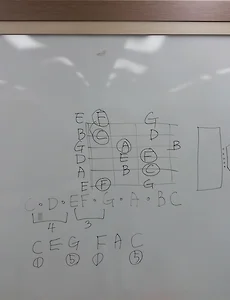 E F G
B C D
G A B
D E F
A B C
E F G
C · D · E F · G · A · B C
4 3
C E G F A C
① ⑤ ① ⑤